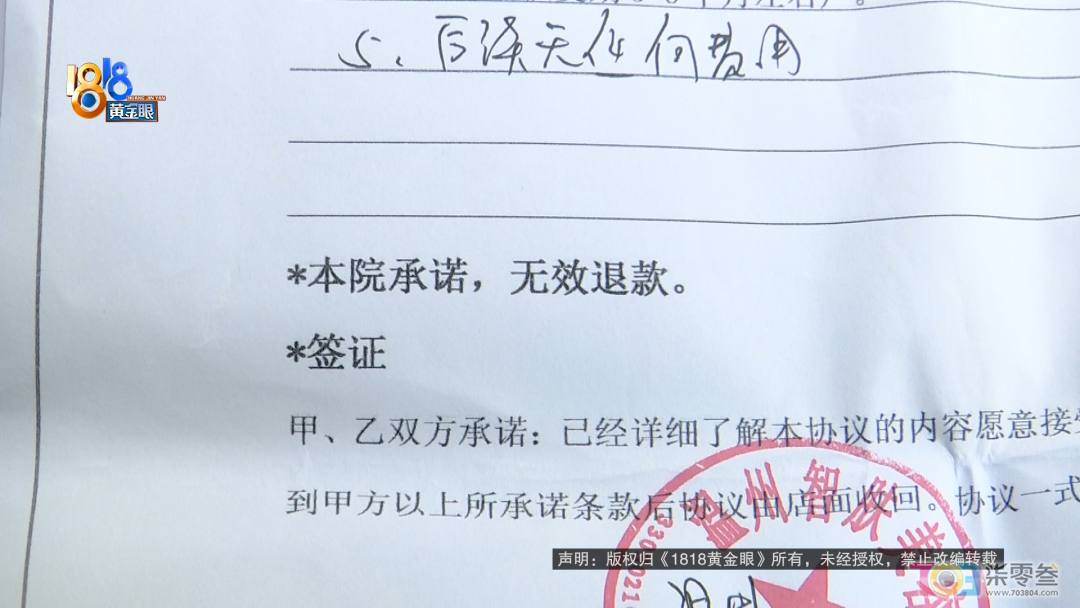 5、后续无任何费用
1818
HUANG JIN YAN
黄金眼
*本院承诺，无效退款。
*签证
甲、乙双方承诺：已经详细了解本协议的内容愿意接受
到甲方以上所承诺条款后协议由店面收回。协议一式
州智欣美
声明：版权归《1818黄金眼》所有，未经授权，禁止改编转载
柒零叁
www.703804.com